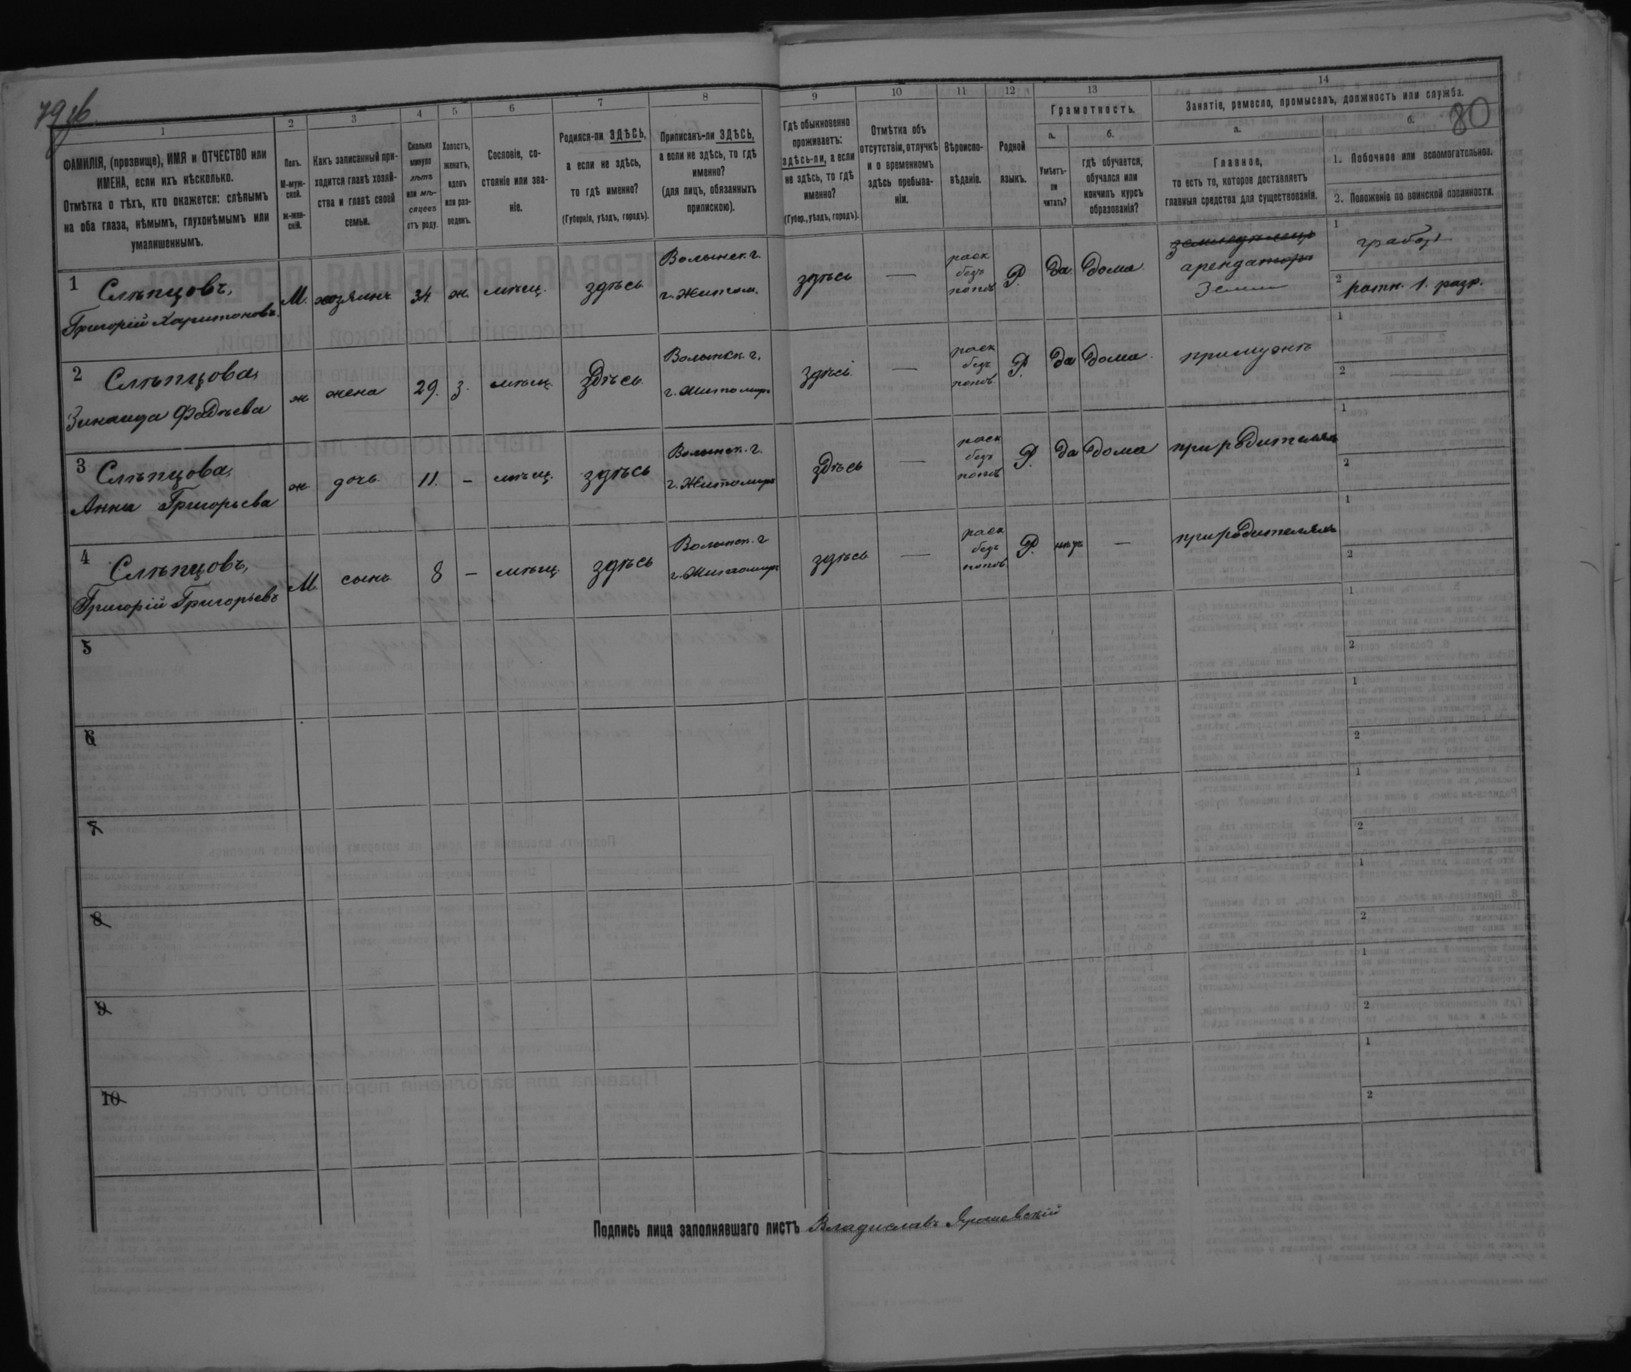 79 об
80
1
2
3
4
5
6
7
8
9
10
11
12
13
14
ФАМИЛІЯ, (прозвище), ИМЯ и ОТЧЕСТВО или
ИМЕНА, если ихъ нѣсколько.
Отмѣтка о тѣхъ, кто окажется: слѣпымъ
на оба глаза, нѣмымъ, глухонѣмымъ или
умалишеннымъ.
Полъ.
М-муж-
ской.
ж-жен-
скій.
Какъ записанный при-
ходится главѣ хозяй-
ства и главѣ своей
семьи.
Сколько
минуло
лѣтъ
или мѣ-
сяцевъ
отъ роду.
Холостъ,
женатъ,
вдовъ
или раз-
веденъ.
Сословіе, со-
стояніе или зва-
ніе.
Родился-ли ЗДѢСЬ,
а если не здѣсь,
то гдѣ именно?
(Губернія, уѣздъ, городъ).
Приписанъ-ли ЗДѢСЬ,
а если не здѣсь, то гдѣ
именно?
(для лицъ, обязанныхъ
припискою).
Гдѣ обыкновенно
проживаетъ:
здѣсь-ли, а если
не здѣсь, то гдѣ
именно?
(Губер., уѣздъ, городъ).
Отмѣтка объ
отсутствіи, отлучкѣ
и о временномъ
здѣсь пребыва-
ніи.
Вѣроиспо-
вѣданіе.
Родной
языкъ.
Грамотность.
а.
Умѣетъ-
ли
читать?
б.
гдѣ обучается,
обучался или
кончилъ курсъ
образованія?
Занятіе, ремесло, промыселъ, должность или служба.
а.
Главное,
то есть то, которое доставляетъ
главныя средства для существованія.
б.
1. Побочное или вспомогательное.
2. Положеніе по воинской повинности.
1 Слѣпцовъ,
Григорій Харитоновъ
М. хозяинъ 34 ж. мѣщ. здѣсь
Волынск. г.
г. Житом.
здѣсь —
раск
безъ
попов
Р. да дома
земледѣлецъ
арендаторъ
земли
1
2 ратн. 1. разр.
2 Слѣпцова,
Зинаида Фадѣева
ж жена 29. з. мѣщ. здѣсь
Волынск. г.
г. Житомир
здѣсь —
раск
безъ
попов
Р. да дома при мужѣ
1 —
2 —
3 Слѣпцова,
Анна Григорьева
ж дочь 11. — мѣщ. здѣсь
Волынск. г.
г. Житомир
здѣсь —
раск
безъ
попов
Р. да дома при родителяхъ
1
2
4 Слѣпцовъ,
Григорій Григорьевъ
М сынъ 8 — мѣщ здѣсь
Волынск. г
г. Житомир
здѣсь —
раск
безъ
попов
Р. нѣтъ — при родителяхъ
1
2
5
1
2
6
1
2
7
1
2
8
1
2
9
1
2
10
1
2
Подпись лица заполнявшаго листъ Владиславъ Ярошевскій